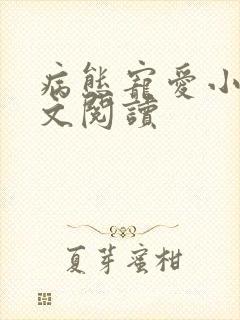 病態寵愛小
文閱讀
夏芽蜜柑